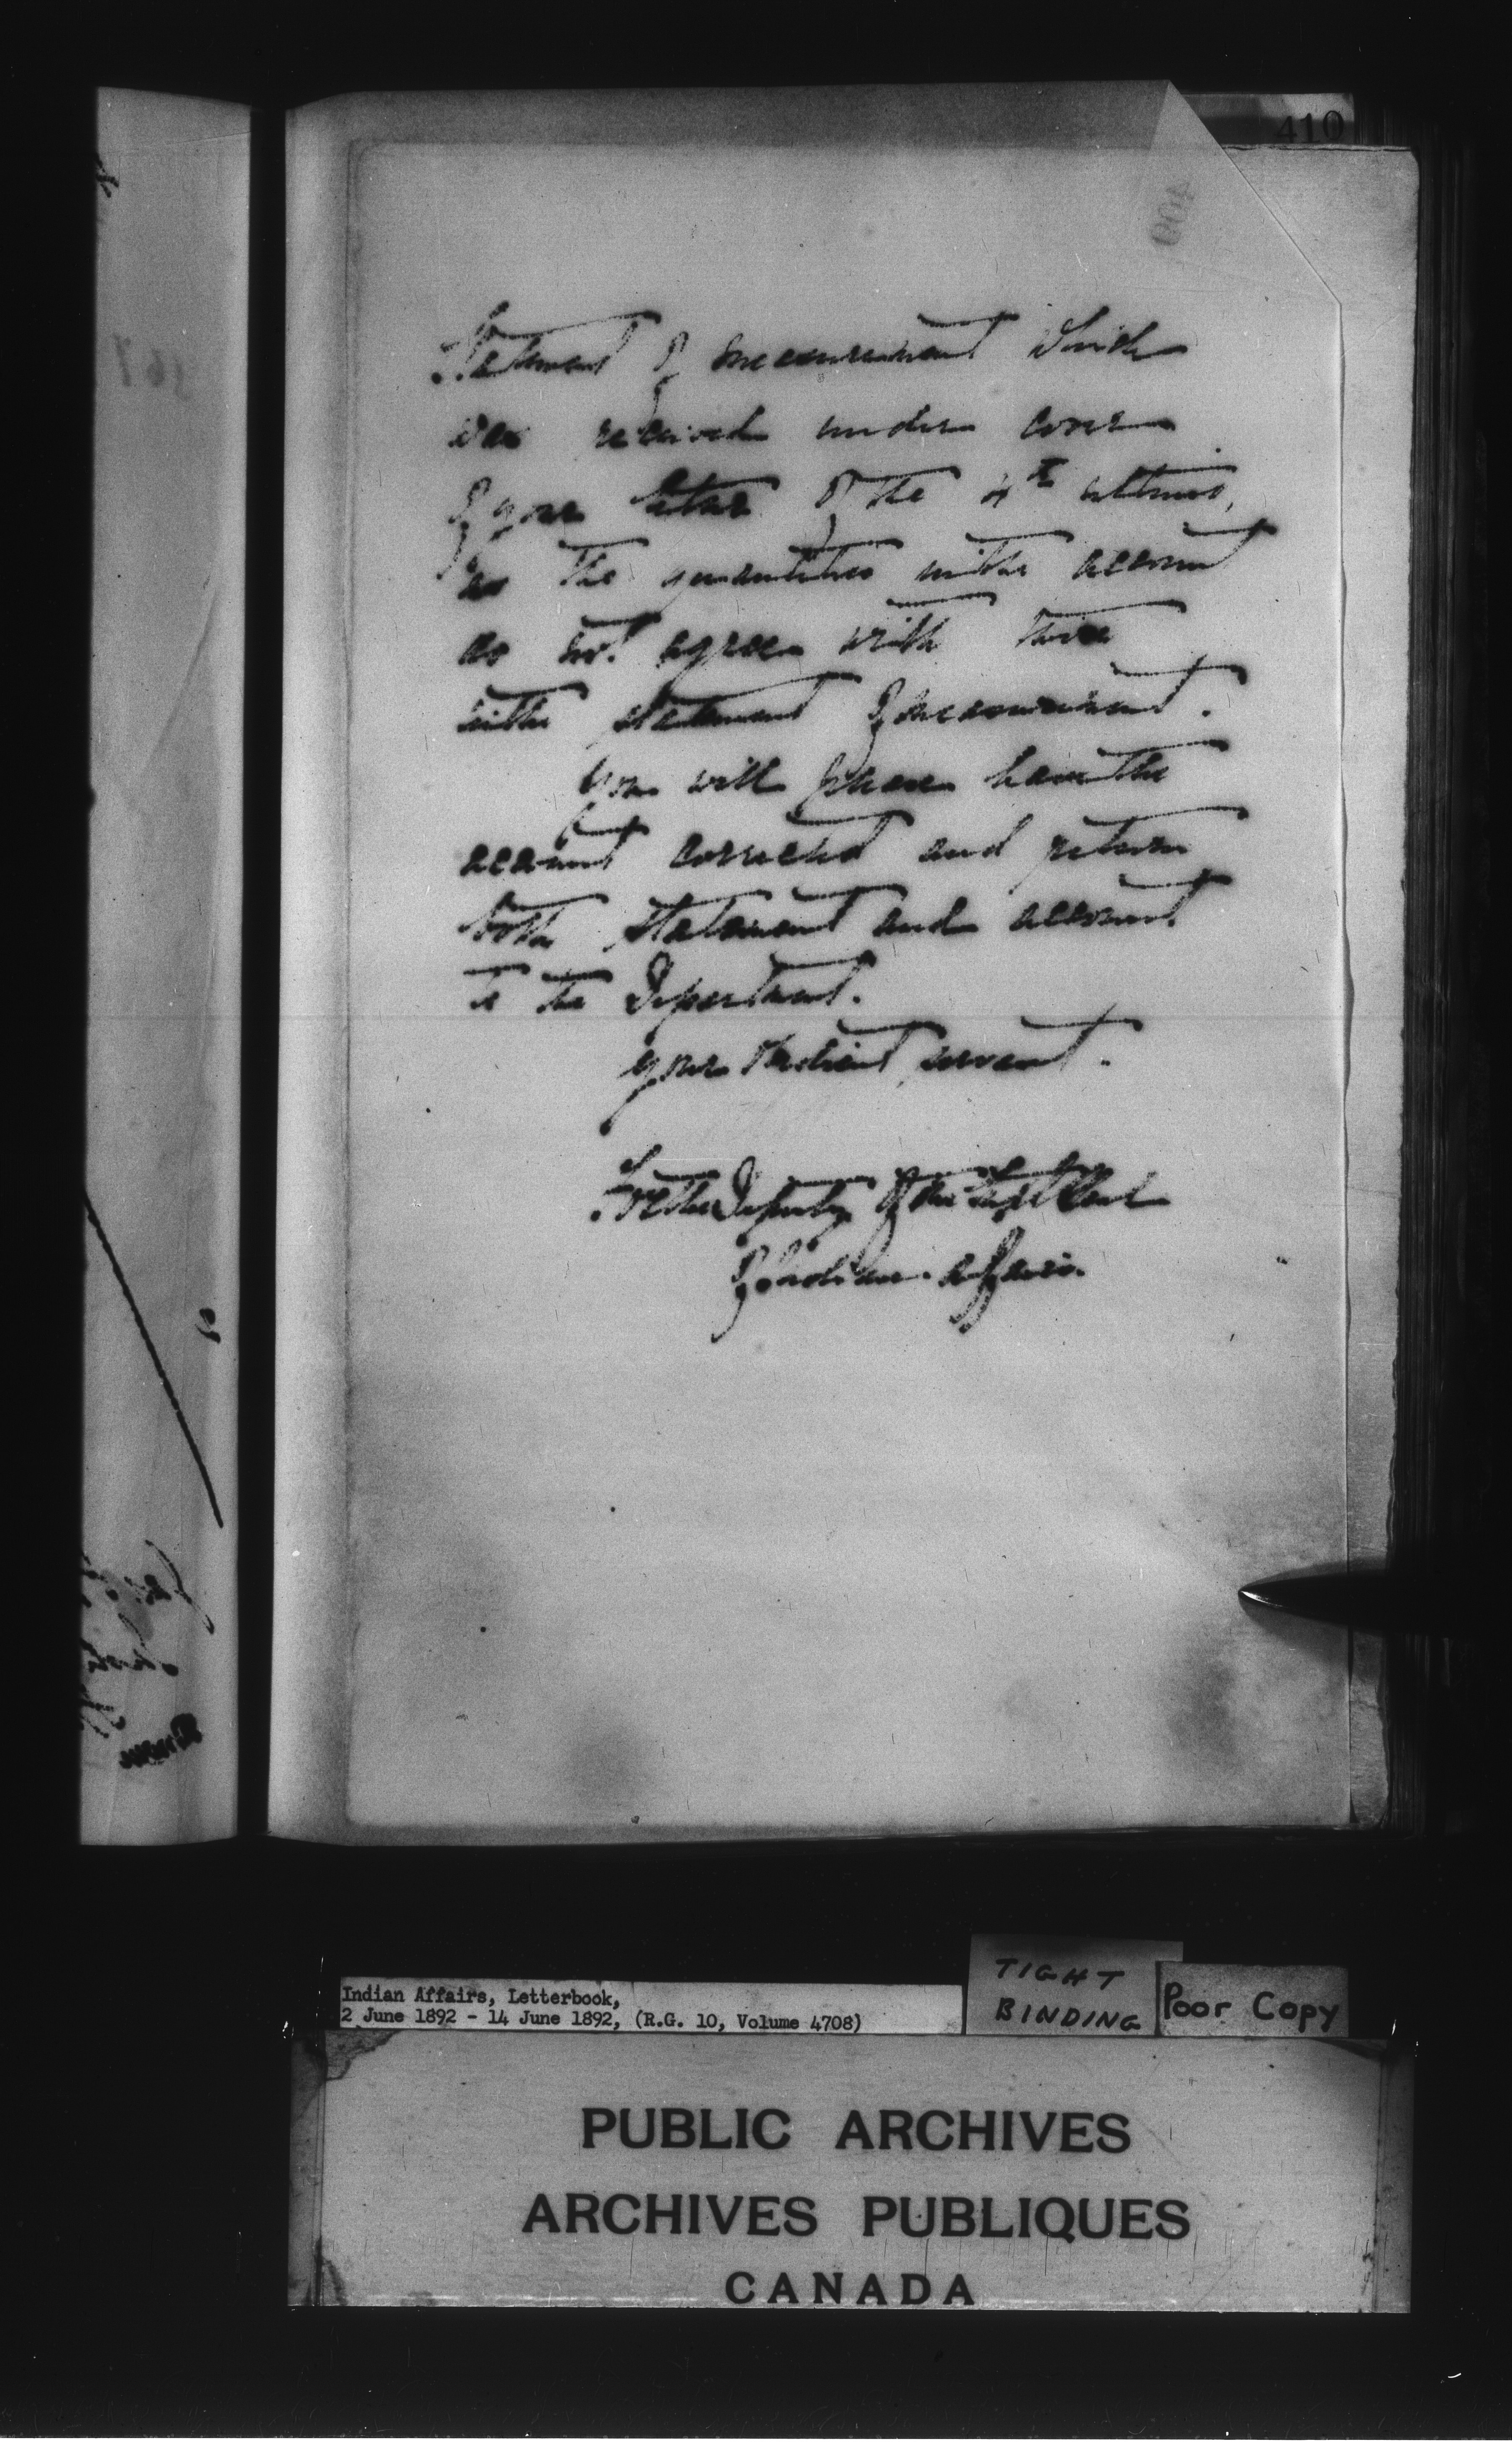 410
409
Statement of measurement which
was received under cover
of your letter of the 4th ultimo,
as the quantities in the account
do not agree with those
in the statement of measurement.
You will please have the
account corrected and return
both statement and account
to the Department.
Your obedient servant.
For the Deputy of the Supt Genl
of Indian Affairs.
Indian Affairs, Letterbook,
2 June 1892 - 14 June 1892, (R.G. 10, Volume 4708)
TIGHT
BINDING
Poor Copy
PUBLIC ARCHIVES
ARCHIVES PUBLIQUES
CANADA